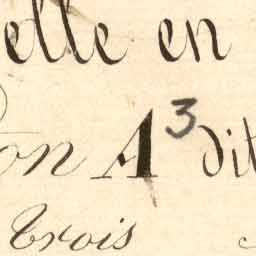 elle en
on A 3 dit
trois